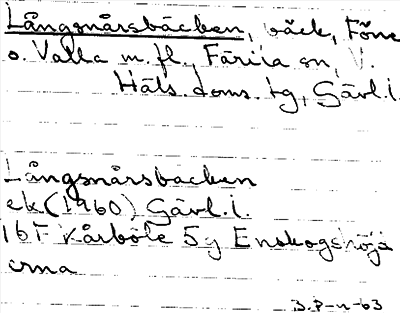 Långsnårsbäcken, bäck, Föne
o. Valla m. fl., Färila sn, V.
Häls. doms. tg, Gävl.l.
Långsnårsbäcken
ek (1960) Gävl.l.
16F Kårböle 5g Enskogshöja
erna